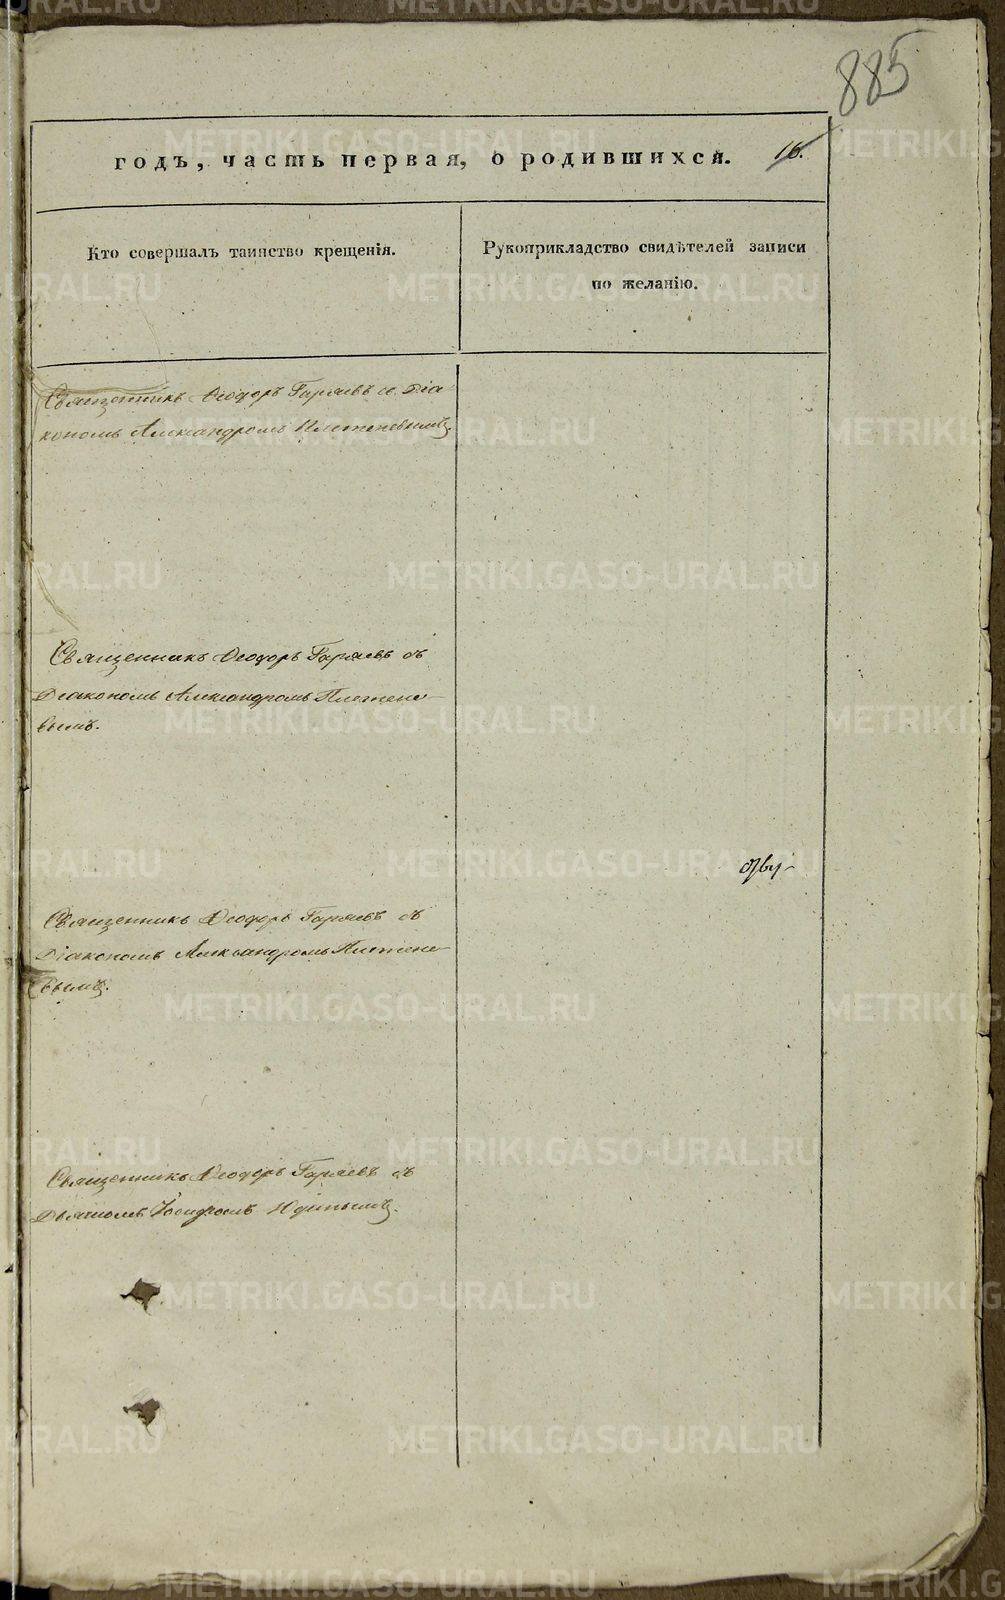 885
годъ, часть первая, о родившихся. 16.
Кто совершалъ таинство крещенія.
Рукоприкладство свидѣтелей записи
по желанію.
Священникъ Ѳеодоръ Гаряевъ съ Діа-
кономъ Александромъ Плетеневымъ.
Священникъ Ѳеодоръ Гаряевъ съ
Діакономъ Александромъ Плетене-
вымъ.
Священникъ Ѳеодоръ Гаряевъ съ
Діакономъ Александромъ Плетене-
вымъ.
Священникъ Ѳеодоръ Гаряевъ съ
Дьячкомъ Юдинымъ.
METRIKI.GASO-URAL.RU